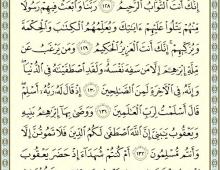 إِنَّكَ أَنتَ ٱلتَّوَّابُ ٱلرَّحِيمُ ١٢٨ رَبَّنَا وَٱبْعَثْ فِيهِمْ رَسُولًا
مِّنْهُمْ يَتْلُوا۟ عَلَيْهِمْ ءَايَٰتِكَ وَيُعَلِّمُهُمُ ٱلْكِتَٰبَ وَٱلْحِكْمَةَ
وَيُزَكِّيهِمْ إِنَّكَ أَنتَ ٱلْعَزِيزُ ٱلْحَكِيمُ ١٢٩ وَمَن يَرْغَبُ عَن
مِّلَّةِ إِبْرَٰهِـۧمَ إِلَّا مَن سَفِهَ نَفْسَهُۥ وَلَقَدِ ٱصْطَفَيْنَٰهُ فِى ٱلدُّنْيَا
وَإِنَّهُۥ فِى ٱلْءَاخِرَةِ لَمِنَ ٱلصَّٰلِحِينَ ١٣٠ إِذْ قَالَ لَهُۥ رَبُّهُۥٓ أَسْلِمْ
قَالَ أَسْلَمْتُ لِرَبِّ ٱلْعَٰلَمِينَ ١٣١ وَوَصَّىٰ بِهَآ إِبْرَٰهِـۧمُ بَنِيهِ
وَيَعْقُوبُ يَٰبَنِىَّ إِنَّ ٱللَّهَ ٱصْطَفَىٰ لَكُمُ ٱلدِّينَ فَلَا تَمُوتُنَّ إِلَّا
وَأَنتُم مُّسْلِمُونَ ١٣٢ أَمْ كُنتُمْ شُهَدَآءَ إِذْ حَضَرَ يَعْقُوبَ